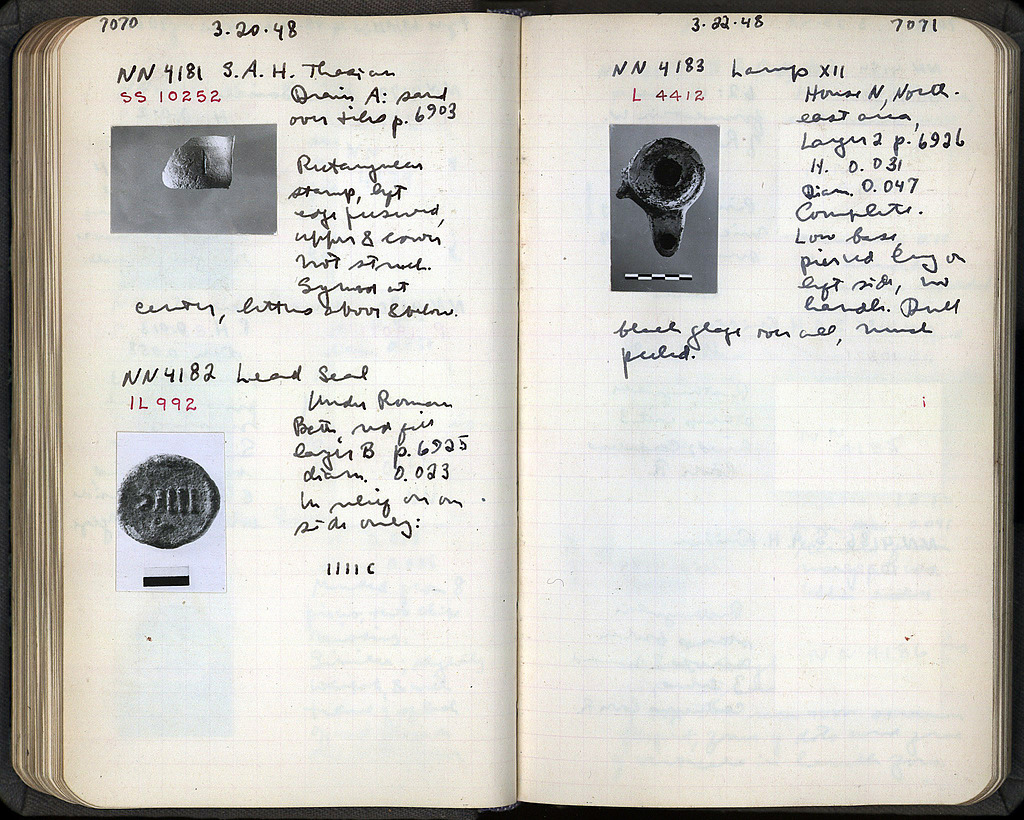 7070
3.20.48
NN 4181 S.A.H. Thasian
SS 10252
Drain A: sand
over tiles p. 6903
Rectangular
stamp, left
edge preserved,
upper & lower
not struck.
Symbol at
center, letters above & below.
NN 4182 Lead Seal
IL 992
Under Roman
Bath, red fill
layer B p. 6925
diam. 0.023
In relief on one
side only:
IIIIC
3.22.48
7071
NN 4183 Lamp XII
L 4412
House N, North-
east area,
Layer 2 p. 6926
H. 0.031
Diam. 0.047
Complete.
Low base,
pierced lug on
left side, no
handle. Dull
black glaze over all, much
peeled.